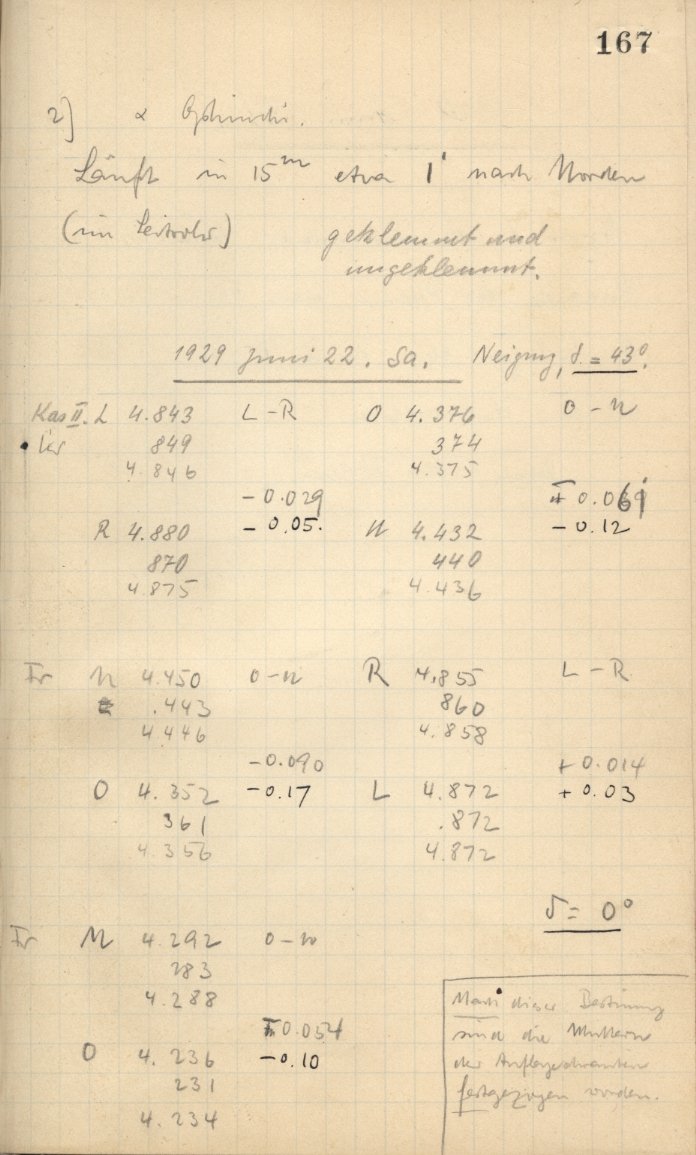 167
2) α Ophiuchi.
Läuft in 15ᵐ etwa 1' nach Norden
(im Leitrohr) geklemmt und
ungeklemmt.
1929 Juni 22. Sa. Neigung, δ = 43°.
Kas II. L 4.843 L-R O 4.376 O-N
849 374
4.846 4.375
-0.029 -0.061
R 4.880 -0.05. N 4.432 -0.12
870 440
4.875 4.436
N 4.450 O-N R 4.855 L-R
.443 860
4.446 4.858
-0.090 +0.014
O 4.352 -0.17 L 4.872 +0.03
361 .872
4.356 4.872
δ = 0°
N 4.292 O-N
283
4.288
-0.054
O 4.236 -0.10
231
4.234
Nach dieser Bestimmung
sind die Muttern
der
festgezogen worden.